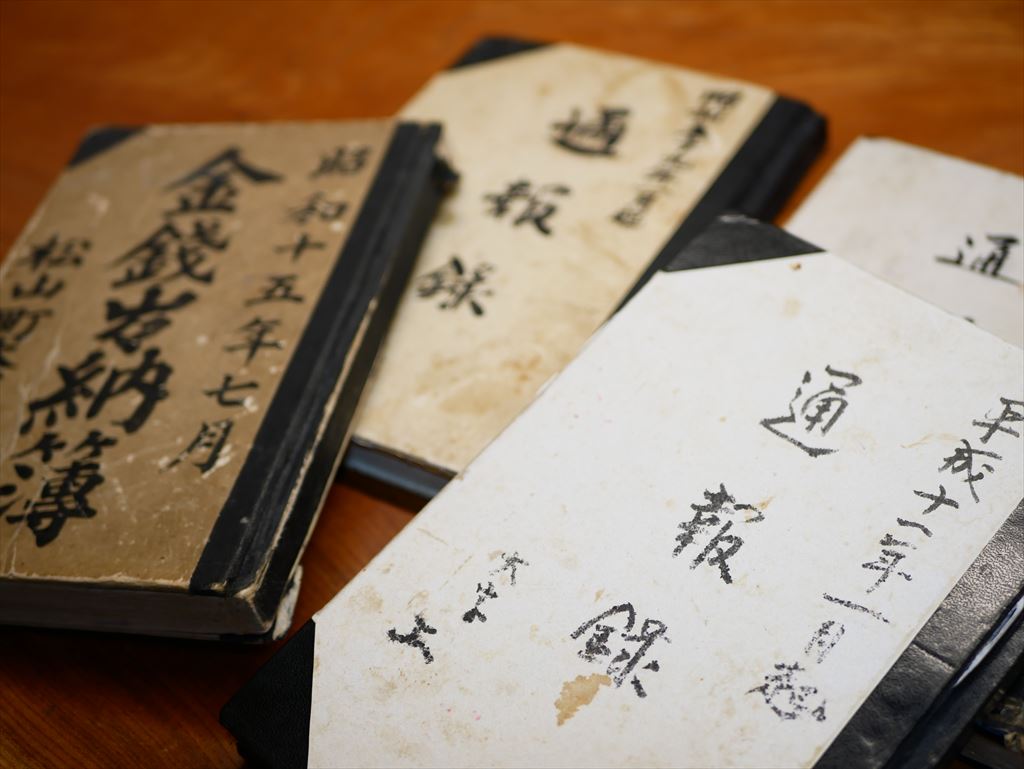 昭和十五年七月
金銭出納簿
松山町
通報録
通
平成十一年一月起
通報録